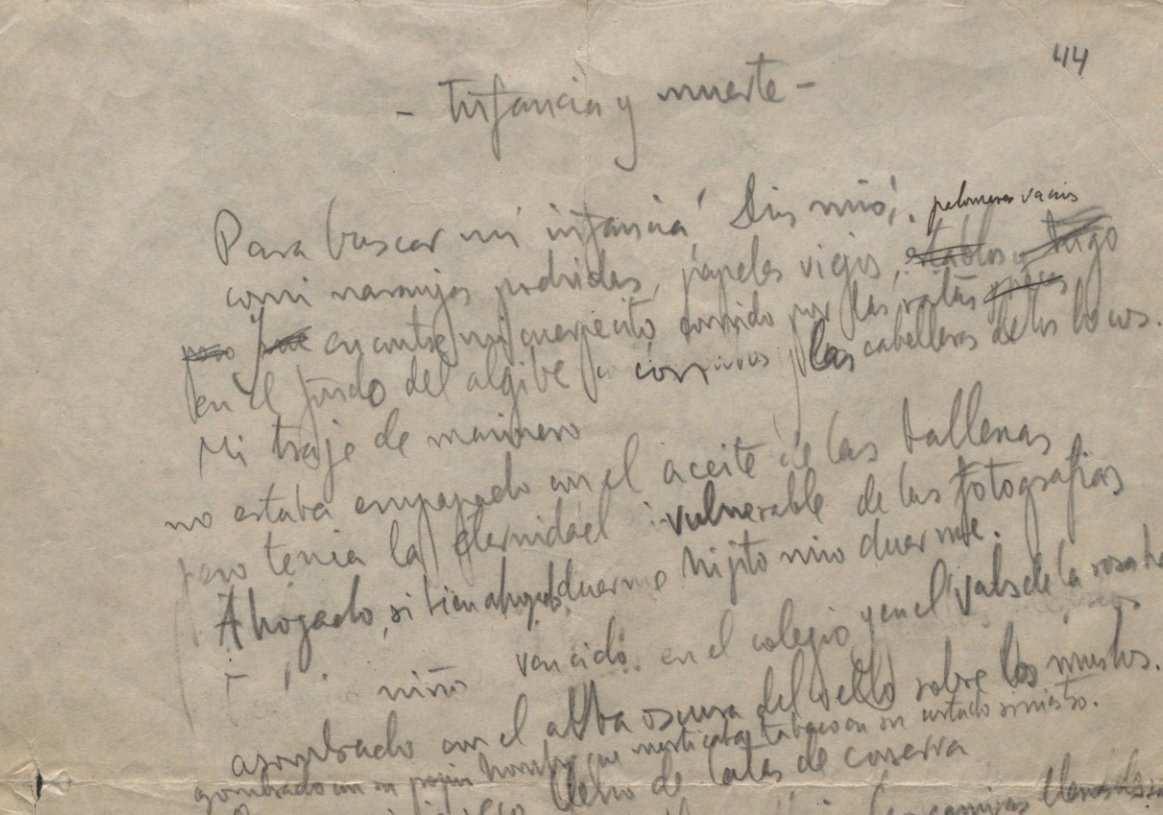 44
- Infancia y muerte -
Para buscar mi infancia ¡Dios mío!.
palomares vacios
comí naranjas podridas, papeles viejos,
encontré mi cuerpecito comido por las ratas
en el fondo del algibe las cabelleras de los locos.
Mi traje de marinero
no estaba empapado en el aceite de las ballenas
pero tenia la eternidad vulnerable de las fotografias
Ahogado, si bien ahogado, duerme hijito mio duerme.
niño vencido en el colegio y en el vals de la rosa
asombrado con el alba oscura del vello sobre los muslos.
asombrado con su propio hombre que masticaba tabaco en su costado siniestro.
seco lleno de latas de conserva
llenas de